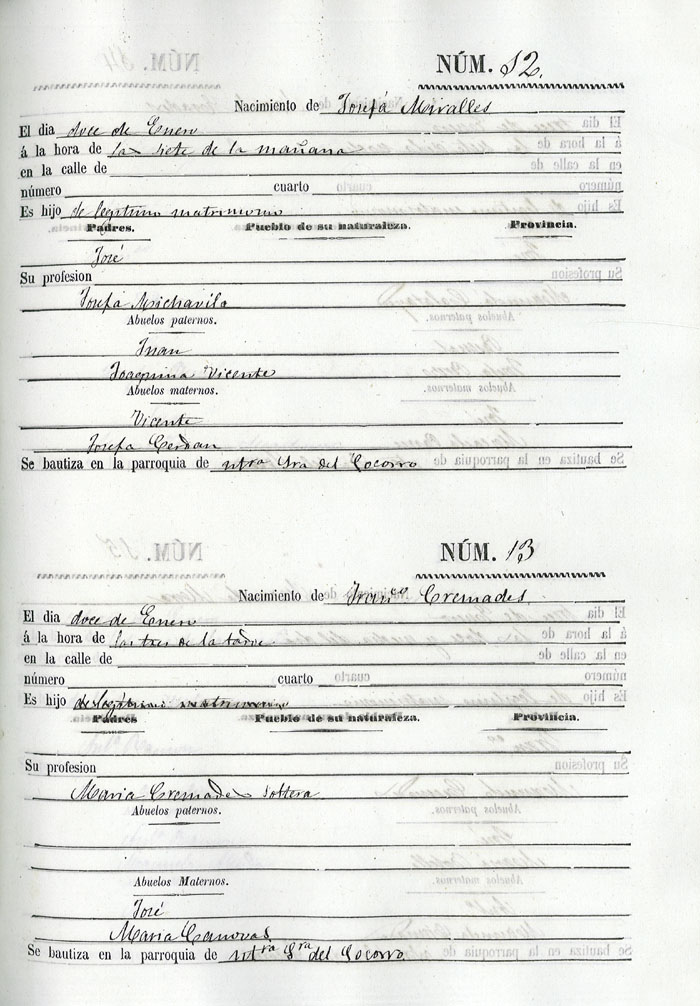 NÚM. 12.
Nacimiento de Josefa Miralles
El dia doce de Enero
á la hora de las siete de la mañana
en la calle de
número cuarto
Es hijo de legitimo matrimonio
Padres. Pueblo de su naturaleza. Provincia.
José
Su profesion
Josefa Michavila
Abuelos paternos.
Juan
Joaquina Vicente
Abuelos maternos.
Vicente
Josefa Cerdan
Se bautiza en la parroquia de Ntra Sra del Socorro
NÚM. 13
Nacimiento de Franco Cremades
El dia doce de Enero
á la hora de las tres de la tarde
en la calle de
número cuarto
Es hijo de legitimo matrimonio
Padres Pueblo de su naturaleza. Provincia.
Su profesion
Maria Cremades soltera
Abuelos paternos.
Abuelos Maternos.
José
Maria Canovas
Se bautiza en la parroquia de Ntra Sra del Socorro